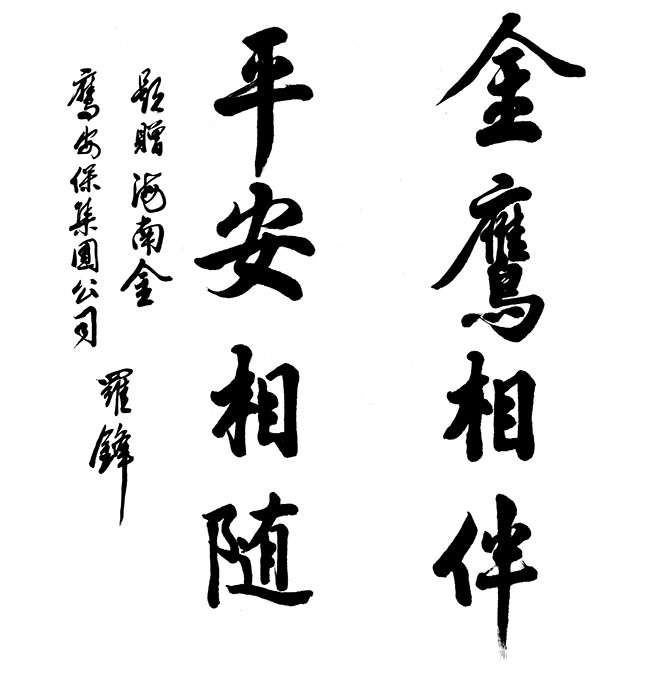 金鹰相伴
平安相随
题赠海南金
鹰安保集团公司
羅鋒